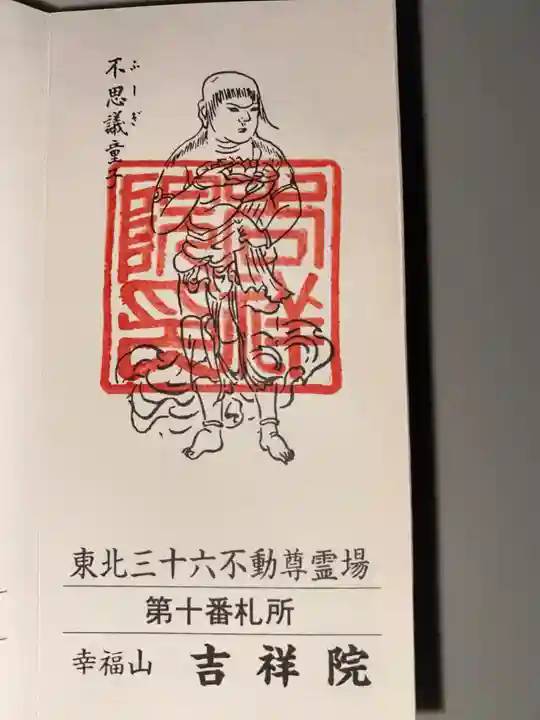 不思議童子
ふしぎ
吉祥
院印
東北三十六不動尊霊場
第十番札所
幸福山 吉祥院